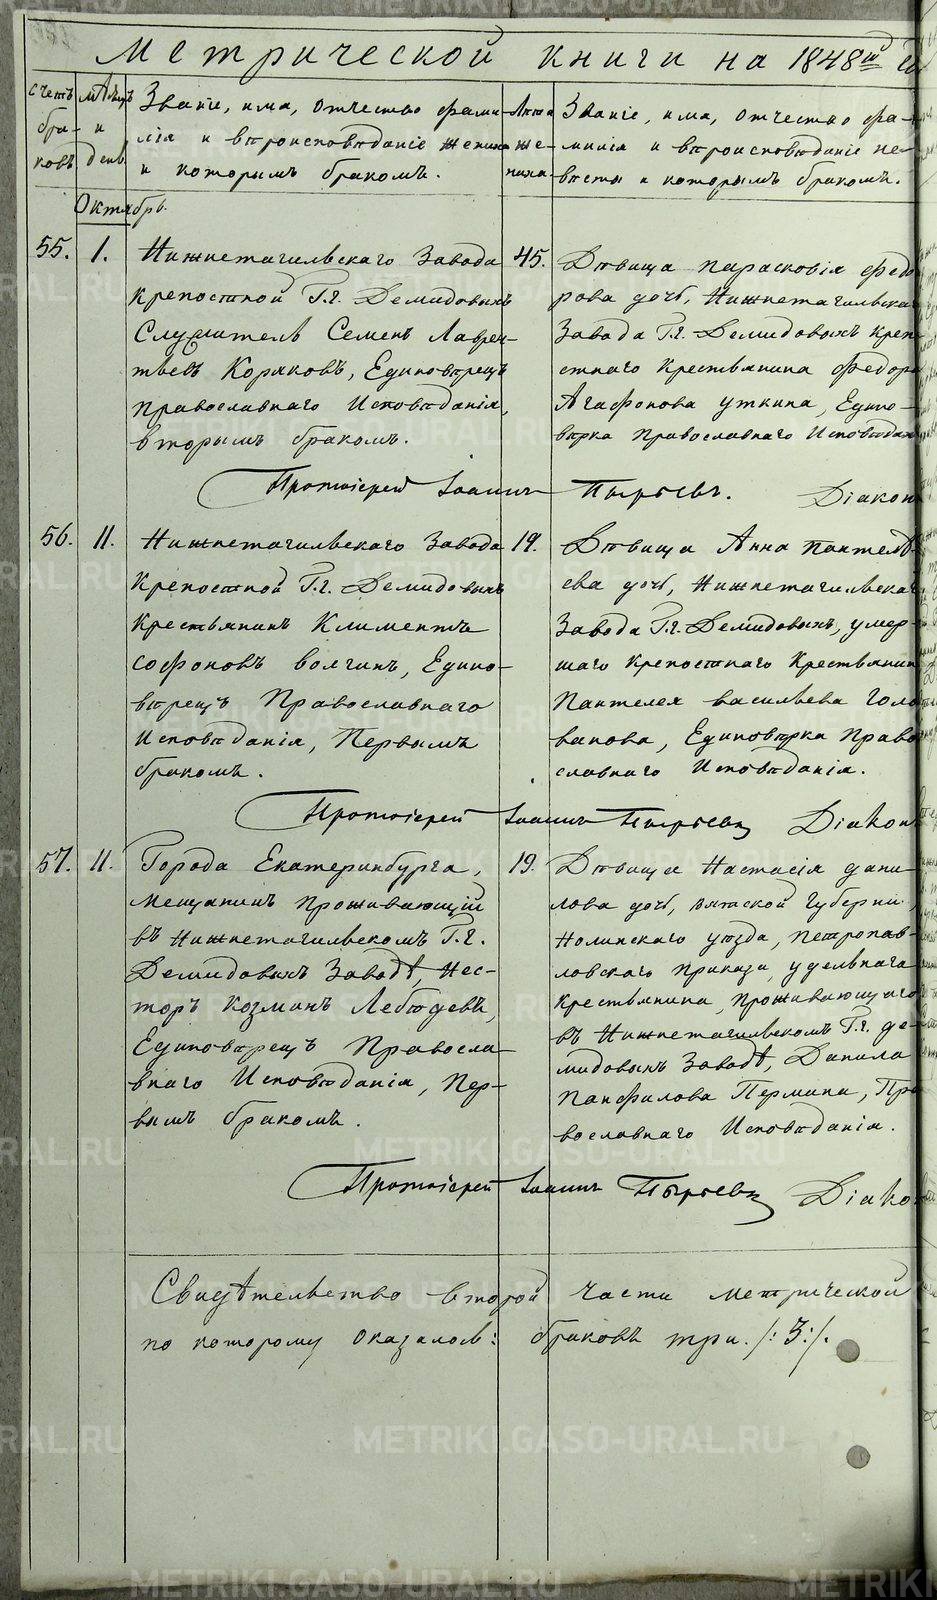 Метрической книги на 1848й
счетъ браковъ
мѣсяцъ и день
Званіе, имя, отчество, фами-
лія и вѣроисповѣданіе жениха
и которымъ бракомъ.
Лѣта же-
ниха
Званіе, имя, отчество, фа-
милія и вѣроисповѣданіе не-
вѣсты и которымъ бракомъ.
Октябрь
55. 1.
Нижнетагильскаго Завода
крепостной Г.г. Демидовыхъ
Служитель Семенъ Лаврен-
тьевъ Коряковъ, Единовѣрецъ
православнаго Исповѣданія,
вторымъ бракомъ.
45.
Дѣвица Парасковія Федо
рова дочь, Нижнетагильска
Завода Г.г. Демидовыхъ креп
стнаго Крестьянина Федора
Агафонова Уткина, Едино-
вѣрка Православнаго Исповѣдан
Протоіерей Іоаннъ Пырьевъ. Діакон
56. 11.
Нижнетагильскаго Завода
Крепостной Г.г. Демидовыхъ
Крестьянинъ Климентъ
Софоновъ Волгинъ, Едино-
вѣрецъ Православнаго
Исповѣданія, Первымъ
бракомъ.
19.
Дѣвица Анна Пантелѣ-
ева дочь, Нижнетагильскаг
Завода Г.г. Демидовыхъ, умер-
шаго Крепостнаго Крестьянин
Пантелея Васильева Голо
ванова, Единовѣрка Право
славнаго Исповѣданія.
Протоіерей Іоаннъ Пырьевъ Діакон
57. 11.
Города Екатеринбурга,
Мещанинъ Проживающій
въ Нижнетагильскомъ Г.г.
Демидовыхъ Заводѣ, Нес-
торъ Козминъ Лебѣдевъ,
Единовѣрецъ Правосла-
внаго Исповѣданія, Пер-
вымъ бракомъ.
19.
Дѣвица Настасія Дани-
лова дочь, Вятской Губерни,
Нолинскаго уѣзда, Петропав-
ловскаго приказа, удельнаго
Крестьянина, Проживающаго
въ Нижнетагильскомъ Г.г. Де-
мидовыхъ Заводѣ, Данила
Панфилова Пермина, Пра
вославнаго Исповѣданія.
Протоіерей Іоаннъ Пырьевъ Діако
Свидѣтельство второй части метрической
по которому оказалось: браковъ три. /: 3 :/.
METRIKI.GASO-URAL.RU